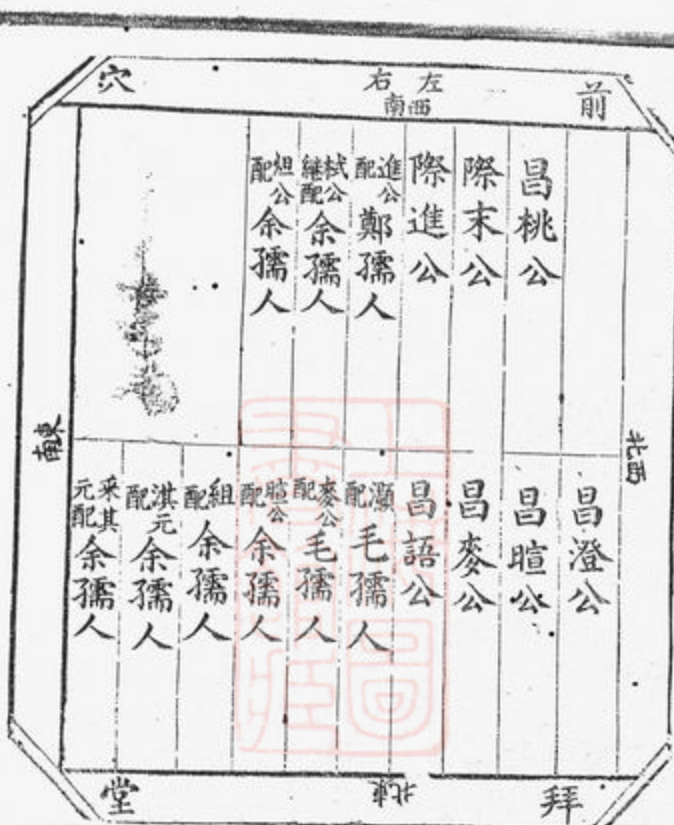 前
左右
西南
穴
昌桃公
際末公
際進公
進公配鄭孺人
栻公継配余孺人
烜公配余孺人
西北
東南
昌澄公
昌暄公
昌麥公
昌語公
灝配毛孺人
麥公配毛孺人
暄公配余孺人
組配余孺人
淇元配余孺人
采其元配余孺人
拜
東北
堂